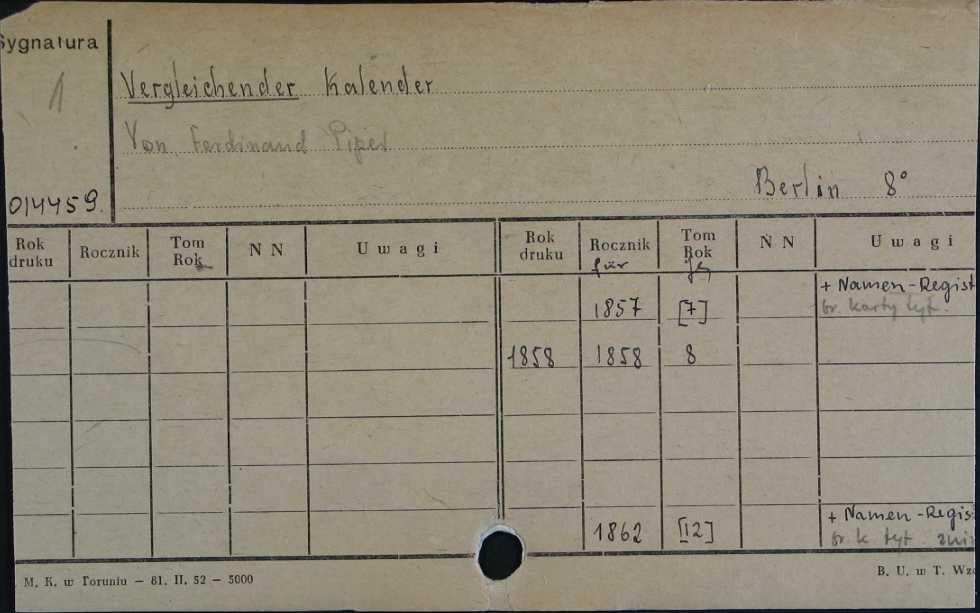 Sygnatura
1
Vergleichender Kalender
Von Ferdinand Piper
Berlin 8°
014459
Rok druku Rocznik Tom Rok N N Uwagi Rok druku Rocznik Tom Rok N N Uwagi
für Jg
1857 [7] + Namen-Regist
br. karty tyt.
1858 1858 8
1862 [12] + Namen-Regis
br. k. tyt.
M. K. w Toruniu — 81. II. 52 — 5000
B. U. w T. Wzo